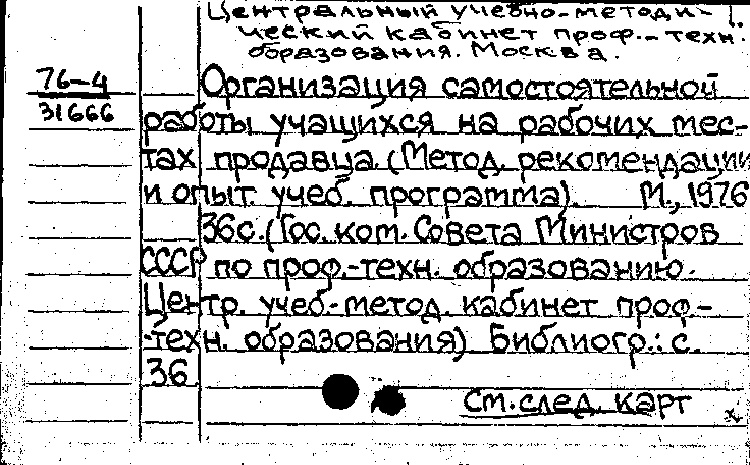 Центральный учебно-методи-
ческий кабинет проф.-техн.
образования. Москва.
76-4
31666
Организация самостоятельной
работы учащихся на рабочих мес-
тах продавца. (Метод. рекомендации
и опыт. учеб. программа). М., 1976
36с. (Гос. ком. Совета Министров
СССР по проф.-техн. образованию.
Центр. учеб-метод. кабинет проф-
-техн. образования) Библиогр.: с.
36
См. след. карт